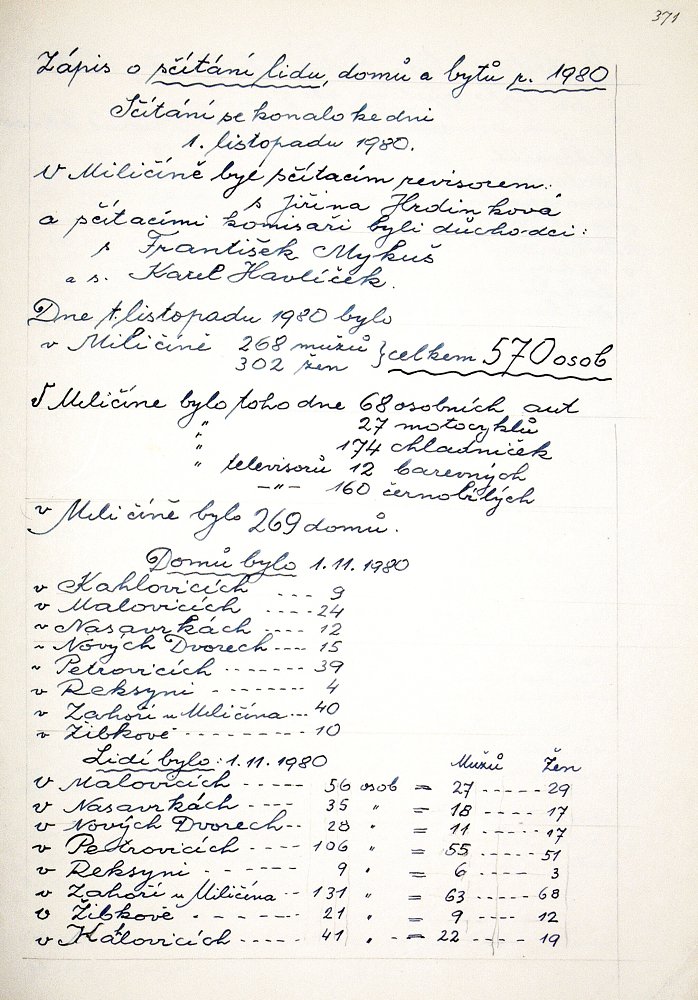 371
Zápis o sčítání lidu, domů a bytů r. 1980
Sčítání se konalo ke dni
1. listopadu 1980.
V Miličíně byl sčítacím revisorem:
s Jiřina Hrdinková
a sčítacími komisaři byli důchodci:
s František Mykuš
a s. Karel Havlíček.
Dne 1. listopadu 1980 bylo
v Miličíně 268 mužů } celkem 570 osob
302 žen
V Miličíne bylo toho dne 68 osobních aut
" 27 motocyklů
" 174 chladniček
" televisorů 12 barevných
—"— 160 černobílých
v Miličíně bylo 269 domů.
Domů bylo 1.11.1980
v Kahlovicích ---- 9
v Malovicích ---- 24
v Nasavrkách ---- 12
v Nových Dvorech ---- 15
v Petrovicích ------- 39
v Reksyni -------- 4
v Zahoří u Miličína --- 40
v Žibkově ---------- 10
Lidí bylo: 1.11.1980 Mužů Žen
v Malovicích ----- 56 osob = 27 ----- 29
v Nasavrkách ---- 35 " = 18 ---- 17
v Nových Dvorech -- 28 " = 11 ---- 17
v Petrovicích ---- 106 " = 55 ---- 51
v Reksyni ------ 9 " = 6 ---- 3
v Zahoří u Miličína -- 131 " = 63 ---- 68
v Žibkově - - - - - - 21 " = 9 ---- 12
v Kahlovicích ---- 41 " - - = 22 ---- 19